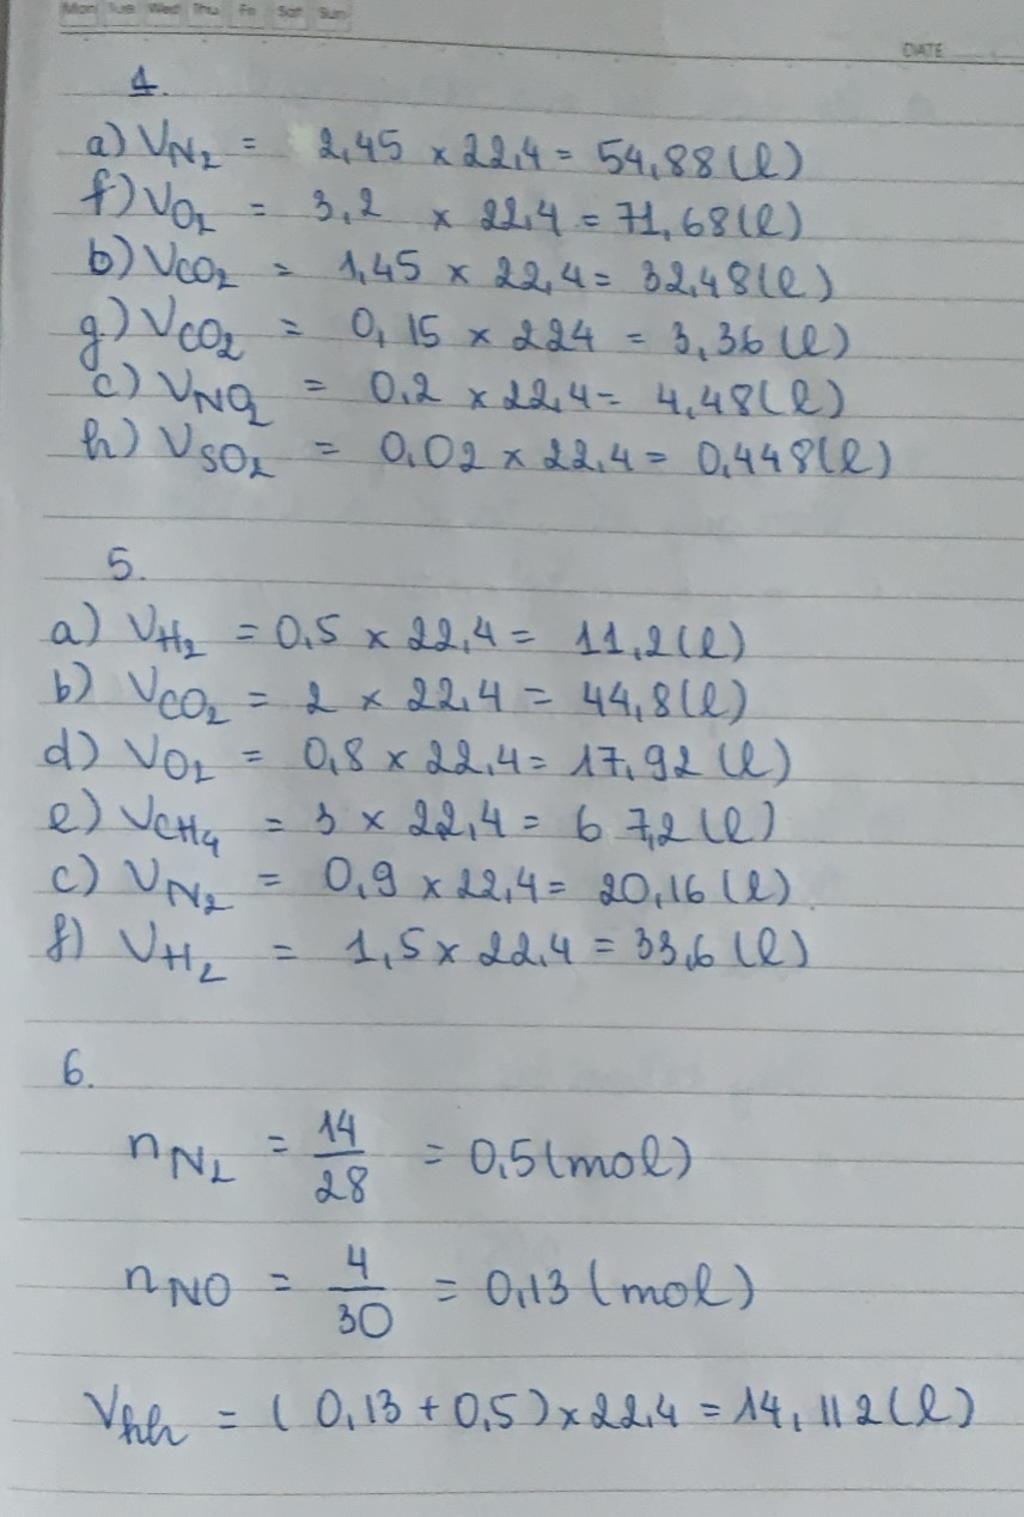 Mon Tue Wed Thu Fri Sat Sun
DATE
4.
a) VN2 = 2,45 x 22,4 = 54,88 (l)
f) VO2 = 3,2 x 22,4 = 71,68 (l)
b) VCO2 = 1,45 x 22,4 = 32,48 (l)
g) VCO2 = 0,15 x 224 = 3,36 (l)
c) VNO2 = 0,2 x 22,4 = 4,48 (l)
h) VSO2 = 0,02 x 22,4 = 0,448 (l)
5.
a) VH2 = 0,5 x 22,4 = 11,2 (l)
b) VCO2 = 2 x 22,4 = 44,8 (l)
d) VO2 = 0,8 x 22,4 = 17,92 (l)
e) VCH4 = 3 x 22,4 = 67,2 (l)
c) VN2 = 0,9 x 22,4 = 20,16 (l)
f) VH2 = 1,5 x 22,4 = 33,6 (l)
6.
nN2 = 14/28 = 0,5 (mol)
nNO = 4/30 = 0,13 (mol)
Vhh = (0,13 + 0,5) x 22,4 = 14,112 (l)